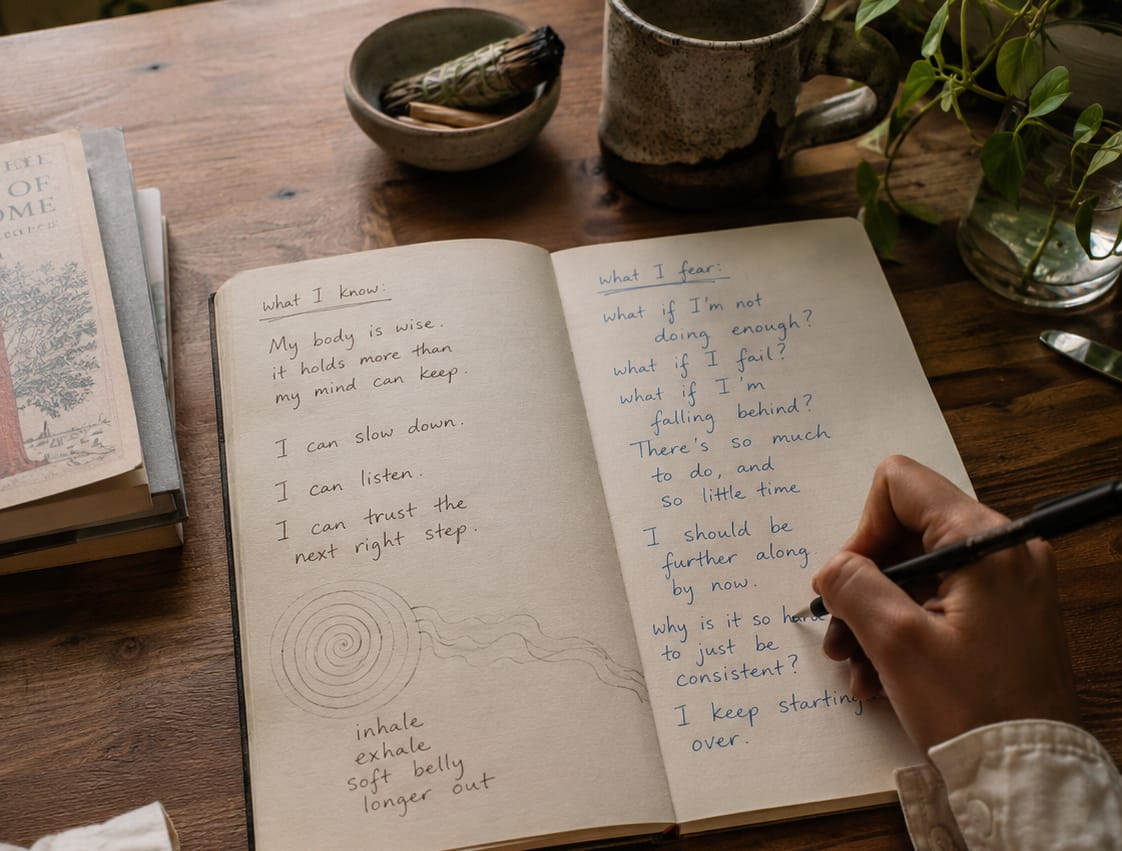 OF
what I know:
My body is wise.
it holds more than
my mind can keep.
I can slow down.
I can listen.
I can trust the
next right step.
inhale
exhale
soft belly
longer out
what I fear:
what if I'm not
doing enough?
what if I fail?
what if I'm
falling behind?
There's so much
to do, and
so little time
I should be
further along
by now.
why is it so hard
to just be
consistent?
I keep starting
over.